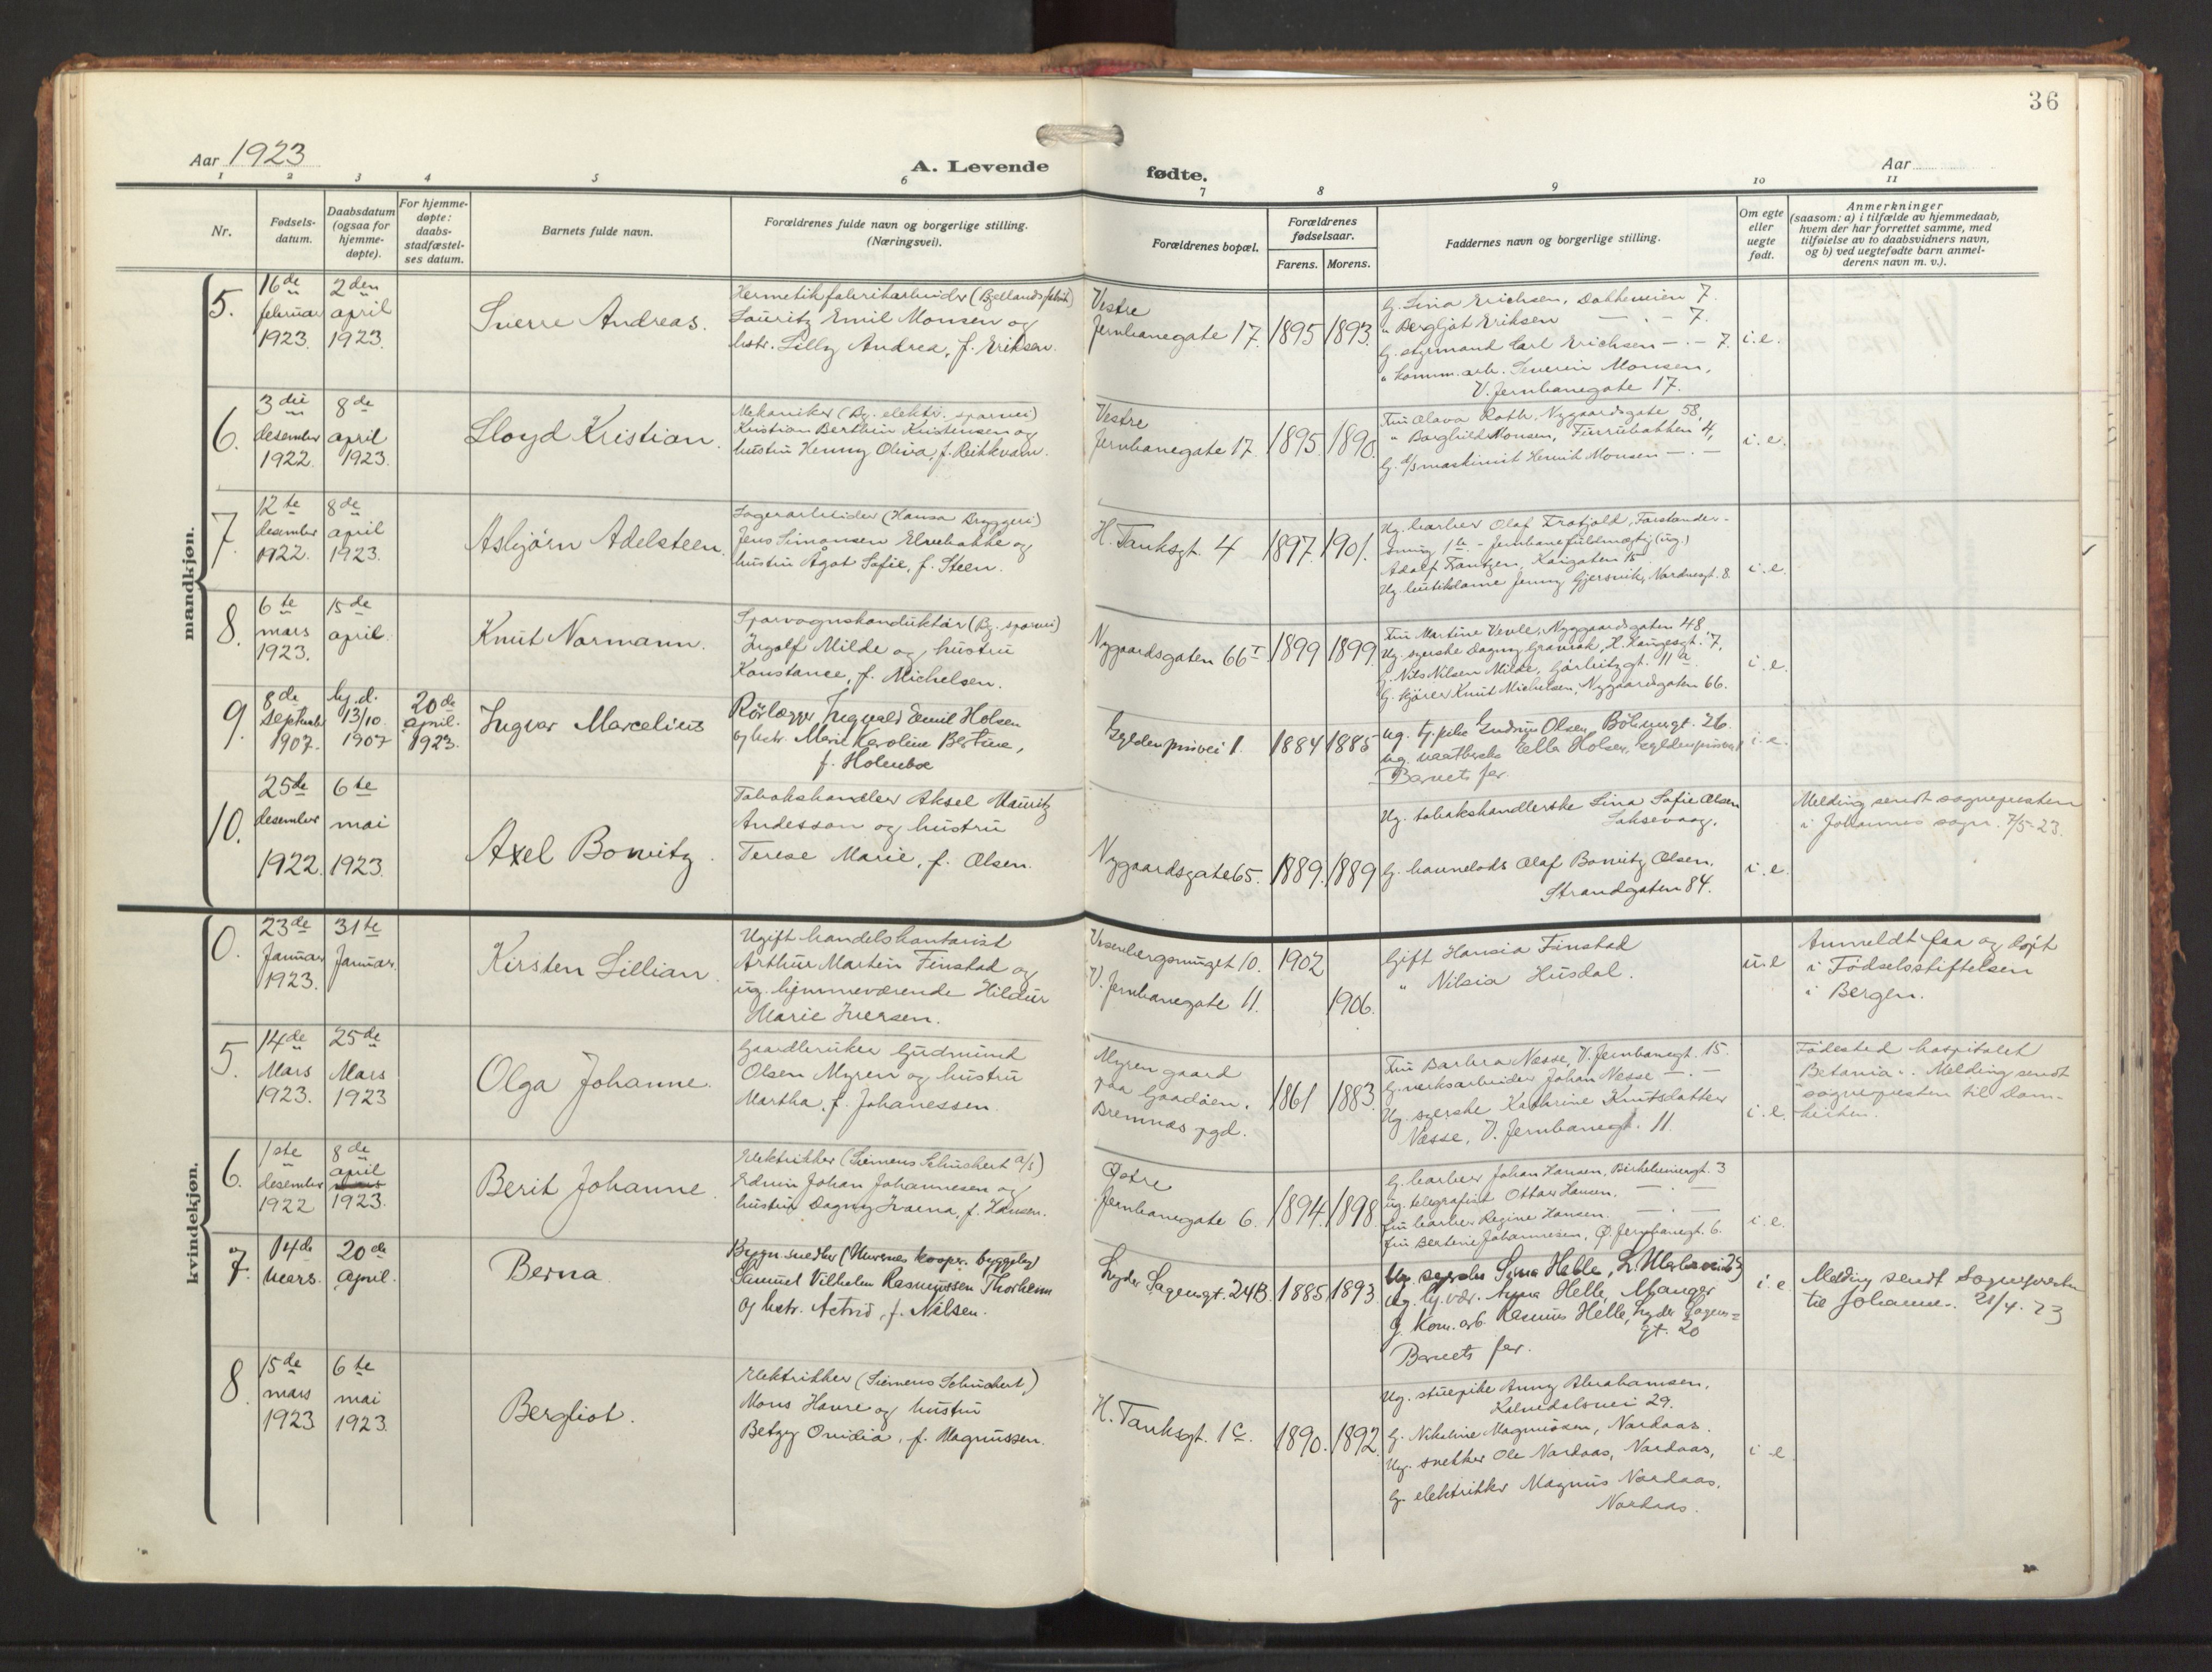 36
Aar 1923
A. Levende
fødte.
Aar
1 2 3 4 5 6 7 8 9 10 11
Nr.
Fødsels-
datum.
Daabsdatum
(ogsaa for
hjemme-
døpte).
For hjemme-
døpte:
daabs-
stadfæstel-
ses datum.
Barnets fulde navn.
Forældrenes fulde navn og borgerlige stilling.
(Næringsvei).
Forældrenes bopæl.
Forældrenes
fødselsaar.
Farens. Morens.
Faddernes navn og borgerlige stilling.
Om egte
eller
uegte
født.
Anmerkninger
(saasom: a) i tilfælde av hjemmedaab,
hvem der har forrettet samme, med
tilføielse av to daabsvidners navn,
og b) ved uegtefødte barn anmel-
derens navn m. v.).
mandkjøn.
5.
16de
februar
1923.
2den
april
1923.
Sverre Andreas.
Hermetikfabrikarbeider (Bjellands fabrik)
Lauritz Emil Monsen og
hstr. Lilly Andrea, f. Eriksen.
Vestre
Jernbanegate 17.
1895 1893.
G. Lina Erichsen, Dokkeveien 7.
" Bergljot Eriksen — . — 7.
G. styrmand Carl Erichsen — . — 7.
" komm. arb. Severin Monsen,
V. Jernbanegate 17.
i.e.
6.
3die
desember
1922.
8de
april
1923.
Lloyd Kristian.
Mekaniker (Bg. elektr. sporvei)
Kristian Berthin Kristensen og
hustru Henny Oliva, f. Reikkvam.
Vestre
Jernbanegate 17.
1895. 1890.
Fru Olava Roth, Nygaardsgate 58,
" Borghild Monsen, Furrubakken 4,
G. d/s maskinist Henrik Monsen — . —
i.e.
7.
12te
desember
1922.
8de
april
1923.
Asbjörn Adelsteen.
Lagerarbeider (Hansa Bryggeri)
Jens Simonsen Elvebakke og
hustru Ågot Sofie, f. Steen.
H. Tanksgt. 4
1897. 1901.
Ug. barber Olaf Trotjold, Forstander-
smug 1b. - Jernbanefuldmægtig (ug.)
Adolf Frantzen, Kaigaten 15
Ug. butikdame Jenny Gjersvik, Nordnesgt. 8.
i.e.
8.
6te
mars
1923.
15de
april.
Knut Normann.
Sporvognskonduktör (Bg. sporvei)
Ingolf Milde og hustru
Konstance, f. Michelsen.
Nygaardsgaten 66 I
1899 1899.
Fru Martine Vevle, Nygaardsgaten 48
Ug. syerske Dagny Gravrok, H. Haugesgt. 7,
G. Nils Nilsen Milde, Görbitzgt. 11a.
G. kjörer Knut Michelsen, Nygaardsgaten 66.
i.e.
9.
8de
September
1907.
hj.d.
13/10.
1907
20de
april.
1923.
Ingvar Marcelius
Rörlægger Ingvald Emil Holsen
og hstr. Marie Karoline Bertine,
f. Holmboe
Gyldenprisvei 1.
1884 1885
ug. tj.pike Gudrun Olsen, Böhmergt. 26.
ug. vævtherske Ella Holsen, Gyldenprisvei 1
Barnets far.
i.e.
10.
25de
desember
1922.
6te
mai
1923.
Axel Bowitz.
Tobakshandler Aksel Mauritz
Andesson og hustru
Terese Marie, f. Olsen.
Nygaardsgate 65.
1889. 1889
Ug. tobakshandlerske Lina Sofie Olsen
Laksevaag.
G. havnelods Olaf Bowitz Olsen,
Strandgaten 84.
i.e.
Melding sendt sognepresten
i Johannes sogn. 7/5-23.
kvindekjøn.
0.
23de
Januar
1923.
31te
Januar.
Kirsten Lillian.
Ugift handelskontorist
Arthur Martin Finstad og
ug. hjemmeværende Hildur
Marie Iversen.
Vesenbergsmuget 10.
V. Jernbanegate 11.
1902
1906.
Gift Hansia Finstad
" Nilsia Husdal.
u.e
Anmeldt fra og döpt
i Födselsstiftelsen
i Bergen.
5.
14de
Mars
1923.
25de
Mars
1923
Olga Johanne.
Gaardbruker Gudmund
Olsen Myren og hustru
Martha, f. Johanessen.
Myren gaard
paa Goddöen,
Bremnæs pgd.
1861 1883.
Fru Barbra Næsse, V. Jernbanegt. 15.
G. verksarbeider Johan Næsse — . —
Ug. syerske Kathrine Knutsdatter
Næsse, V. Jernbanegt. 11.
i.e.
Födested hospitalet
Betania. Melding sendt
sognepresten til Dom-
kirken.
6.
1ste
desember
1922
8de
april
1923.
Berit Johanne.
Elektriker (Siemens Schuckert a/s)
Edvin Johan Johannesen og
hustru Dagny Ivarna, f. Hansen.
Østre
Jernbanegate 6.
1894. 1898.
G. barber Johan Hansen, Birkebeinergt. 3
ug. telegrafist Ottar Hansen, — . —
Fru barber Regine Hansen. — . —
Fru Bertine Johannesen, Ø. Jernbanegt. 6.
i.e.
7.
14de
Mars.
20de
april.
Berna
Bygn. snedker (Murernes kooper. byggelag)
Samuel Vilhelm Rasmussen Thorheim
og hstr. Astrid, f. Nilsen.
Lyder Sagensgt. 24B.
1885 1893.
Ug. hj.vær. Anna Helle, Manger
G. Kom. arb. Rasmus Helle, Lyder Sagens-
gt. 20
Barnets far.
i.e.
Melding sendt Sognepresten
til Johannes. 21/4. 23
8.
15de
mars
1923
6te
mai
1923.
Bergliot.
Elektriker (Siemens Schuckert,)
Mons Havre og hustru
Betzy Ovidia, f. Magnussen.
H. Tanksgt. 1c.
1890. 1892.
Ug. stuepike Anny Abrahamsen,
Kalvedalsvei 29.
G. Nikoline Magnussen, Nordaas.
Ug. snekker Ole Nordaas, Nordaas,
G. elektriker Magnus Nordaas,
Nordaas.
i.e.